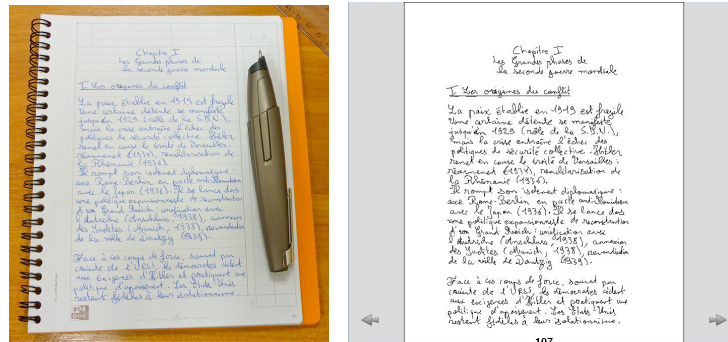 Chapitre I
Les Grandes phases de
la seconde guerre mondiale
I Les origines du conflit
La paix établie en 1919 est fragile
Une certaine détente se manifeste
jusqu'en 1929 (rôle de la S.D.N.),
mais la crise entraîne l'échec des
politiques de sécurité collective. Hitler
remet en cause le traité de Versailles :
réarmement (1935), remilitarisation de
la Rhénanie (1936).
Il rompt son isolement diplomatique :
axe Rome-Berlin en pacte anti-Komintern
avec le Japon (1936). Il se lance dans
une politique expansionniste de reconstruction
d'un Grand Reich : unification avec
l'Autriche (Anschluss, 1938), annexion
des Sudètes (Munich, 1938), revendication
de la ville de Dantzig (1939).
Face à ces coups de force, sound par
crainte de l'URSS, les démocrates cèdent
aux exigences d'Hitler et pratiquent une
politique d'apaisement. Les États-Unis
restent fidèles à leur isolationnisme.
Chapitre I
Les Grandes phases de
la seconde guerre mondiale
I Les origines du conflit
La paix établie en 1919 est fragile
Une certaine détente se manifeste
jusqu'en 1929 (rôle de la S.D.N.),
mais la crise entraîne l'échec des
politiques de sécurité collective. Hitler
remet en cause le traité de Versailles :
réarmement (1935), remilitarisation de
la Rhénanie (1936).
Il rompt son isolement diplomatique :
axe Rome-Berlin en pacte anti-Komintern
avec le Japon (1936). Il se lance dans
une politique expansionniste de reconstruction
d'un Grand Reich : unification avec
l'Autriche (Anschluss, 1938), annexion
des Sudètes (Munich, 1938), revendication
de la ville de Dantzig (1939).
Face à ces coups de force, sound par
crainte de l'URSS, les démocrates cèdent
aux exigences d'Hitler et pratiquent une
politique d'apaisement. Les États-Unis
restent fidèles à leur isolationnisme.
107